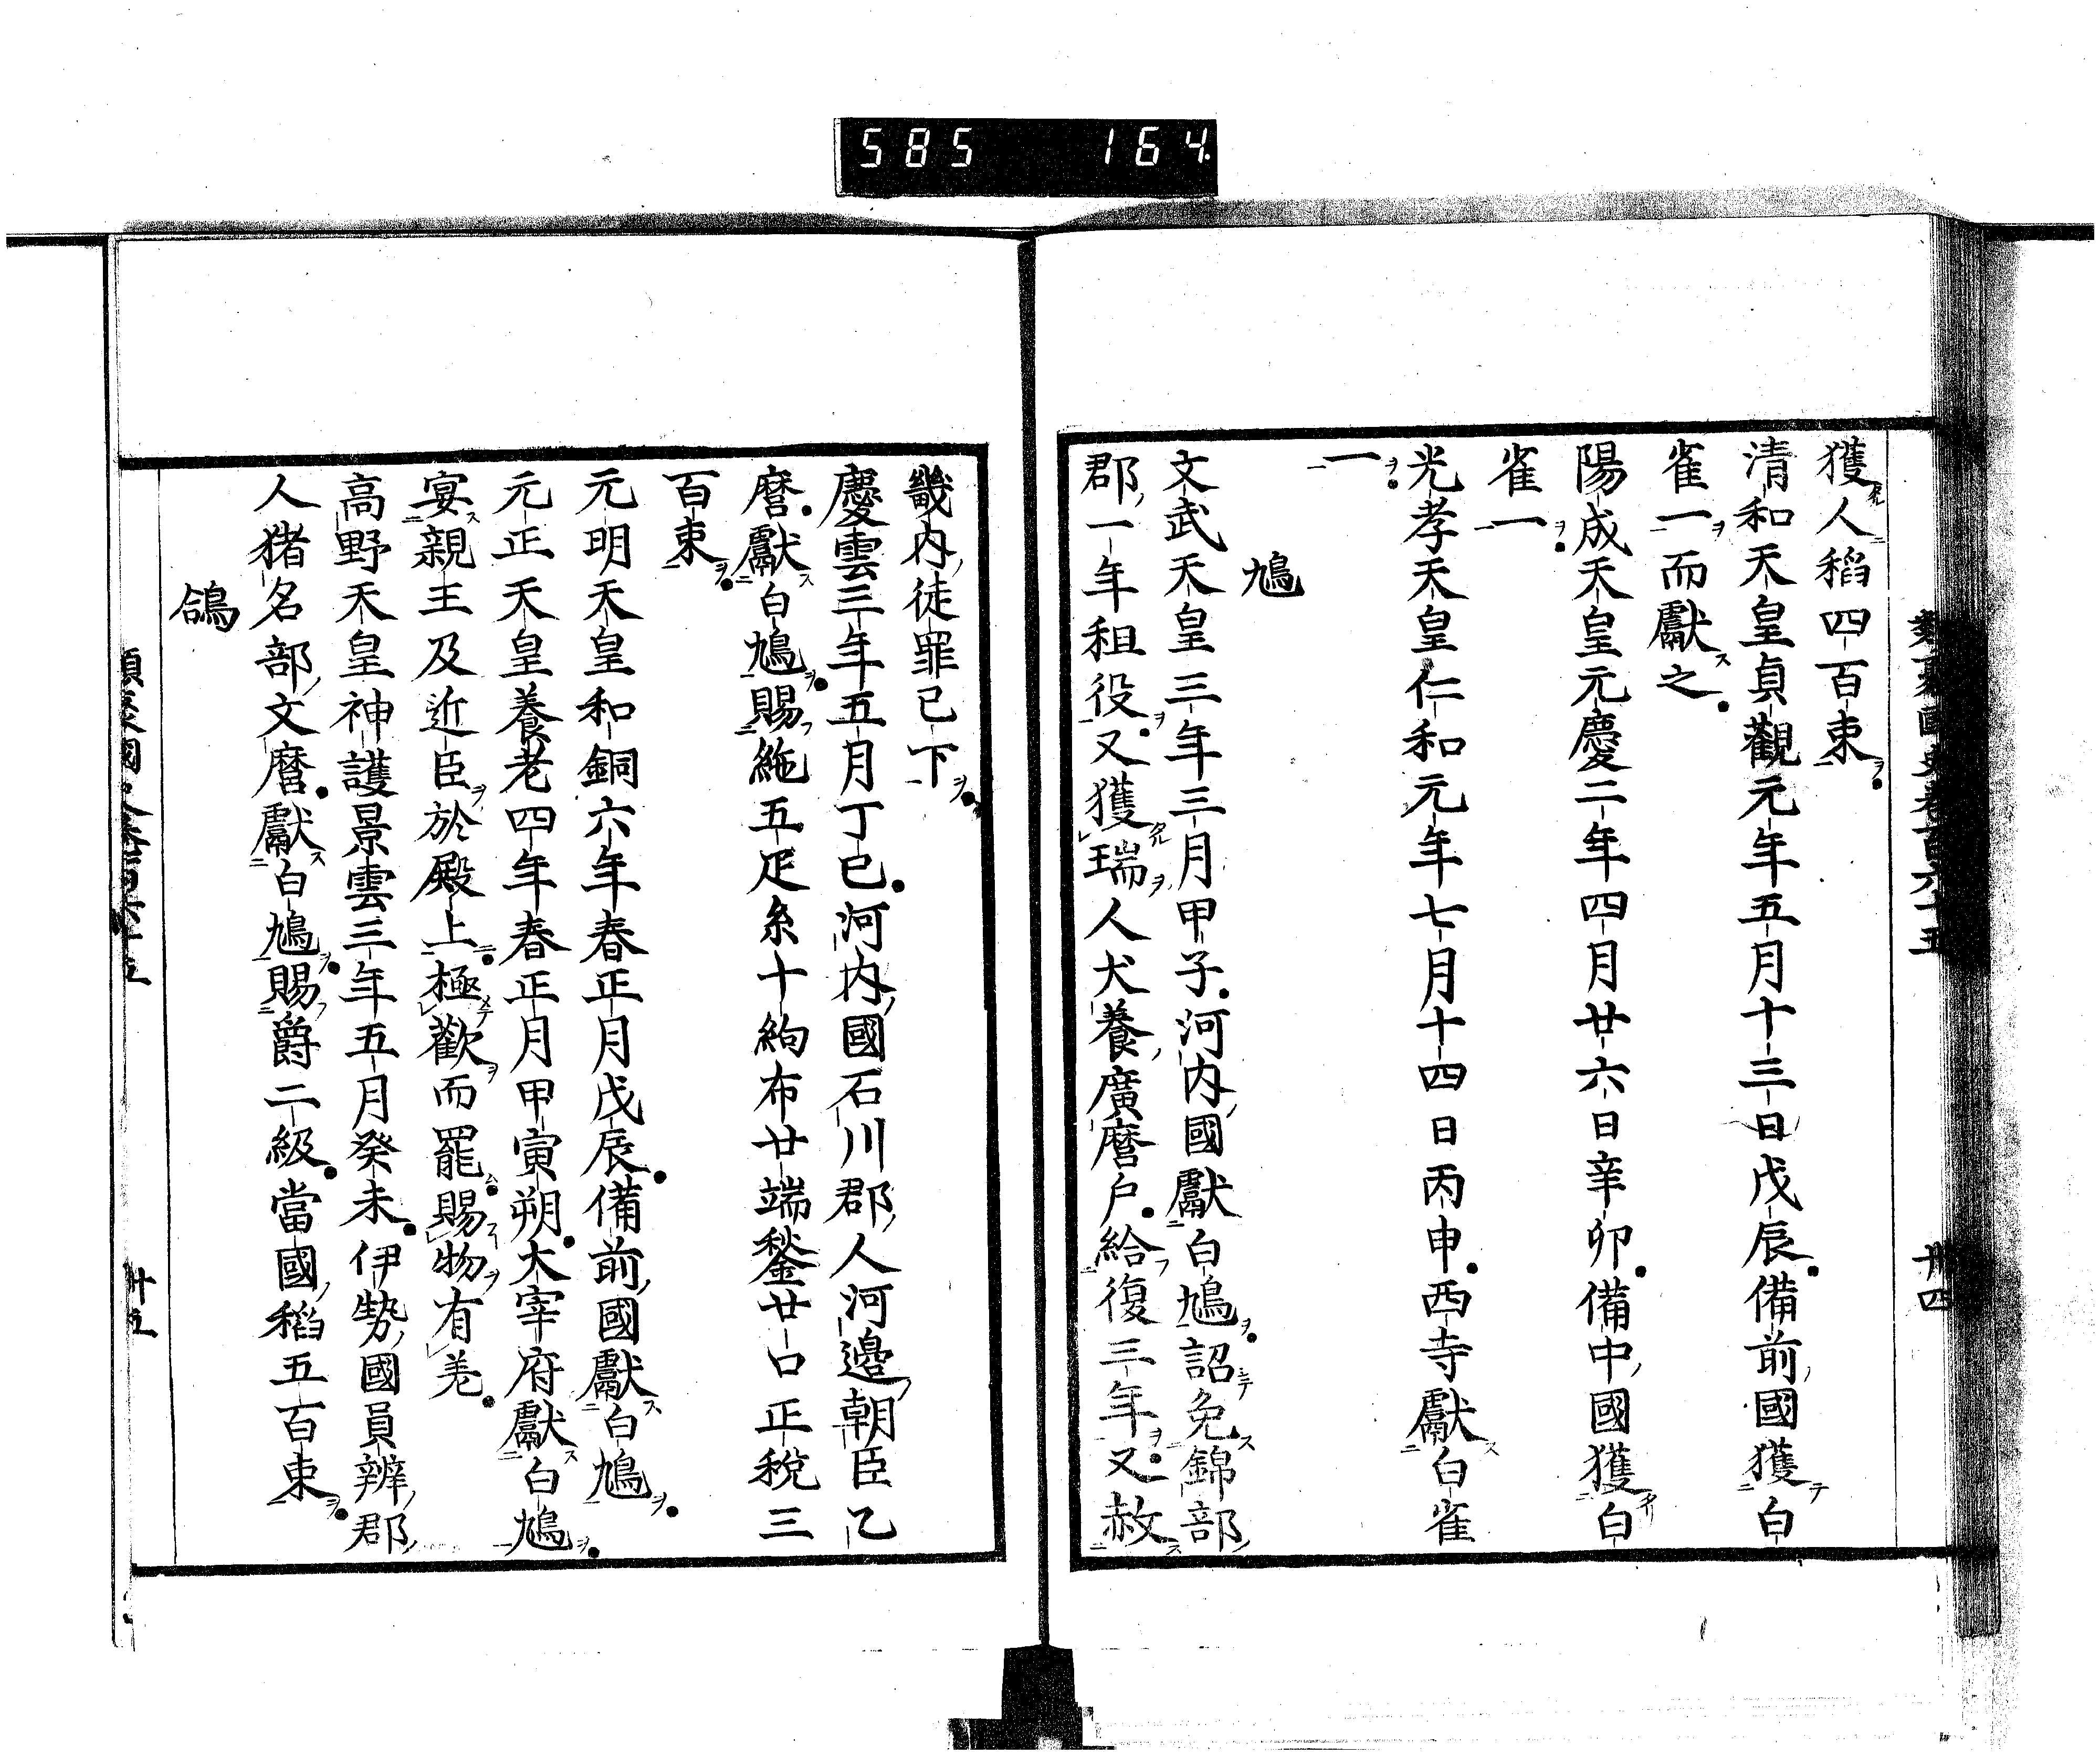 585 164
類聚國史卷百六十五 卅四
獲人稻四百束
清和天皇貞觀元年五月十三日戊辰備前國獲白
雀一而獻之
陽成天皇元慶二年四月廿六日辛卯備中國獲白
雀一
光孝天皇仁和元年七月十四日丙申西寺獻白雀
一
鳩
文武天皇三年三月甲子河內國獻白鳩詔免錦部
郡一年租役又獲瑞人犬養廣麿戶給復三年又赦
畿內徒罪已下
慶雲三年五月丁巳河內國石川郡人河邊朝臣乙
麿獻白鳩賜絁五疋糸十絇布廿端鍫廿口正稅三
百束
元明天皇和銅六年春正月戊辰備前國獻白鳩
元正天皇養老四年春正月甲寅朔大宰府獻白鳩
宴親王及近臣於殿上極歡而罷賜物有差
高野天皇神護景雲三年五月癸未伊勢國員辨郡
人猪名部文麿獻白鳩賜爵二級當國稻五百束
鴿
類聚國史卷百六十五 卅五